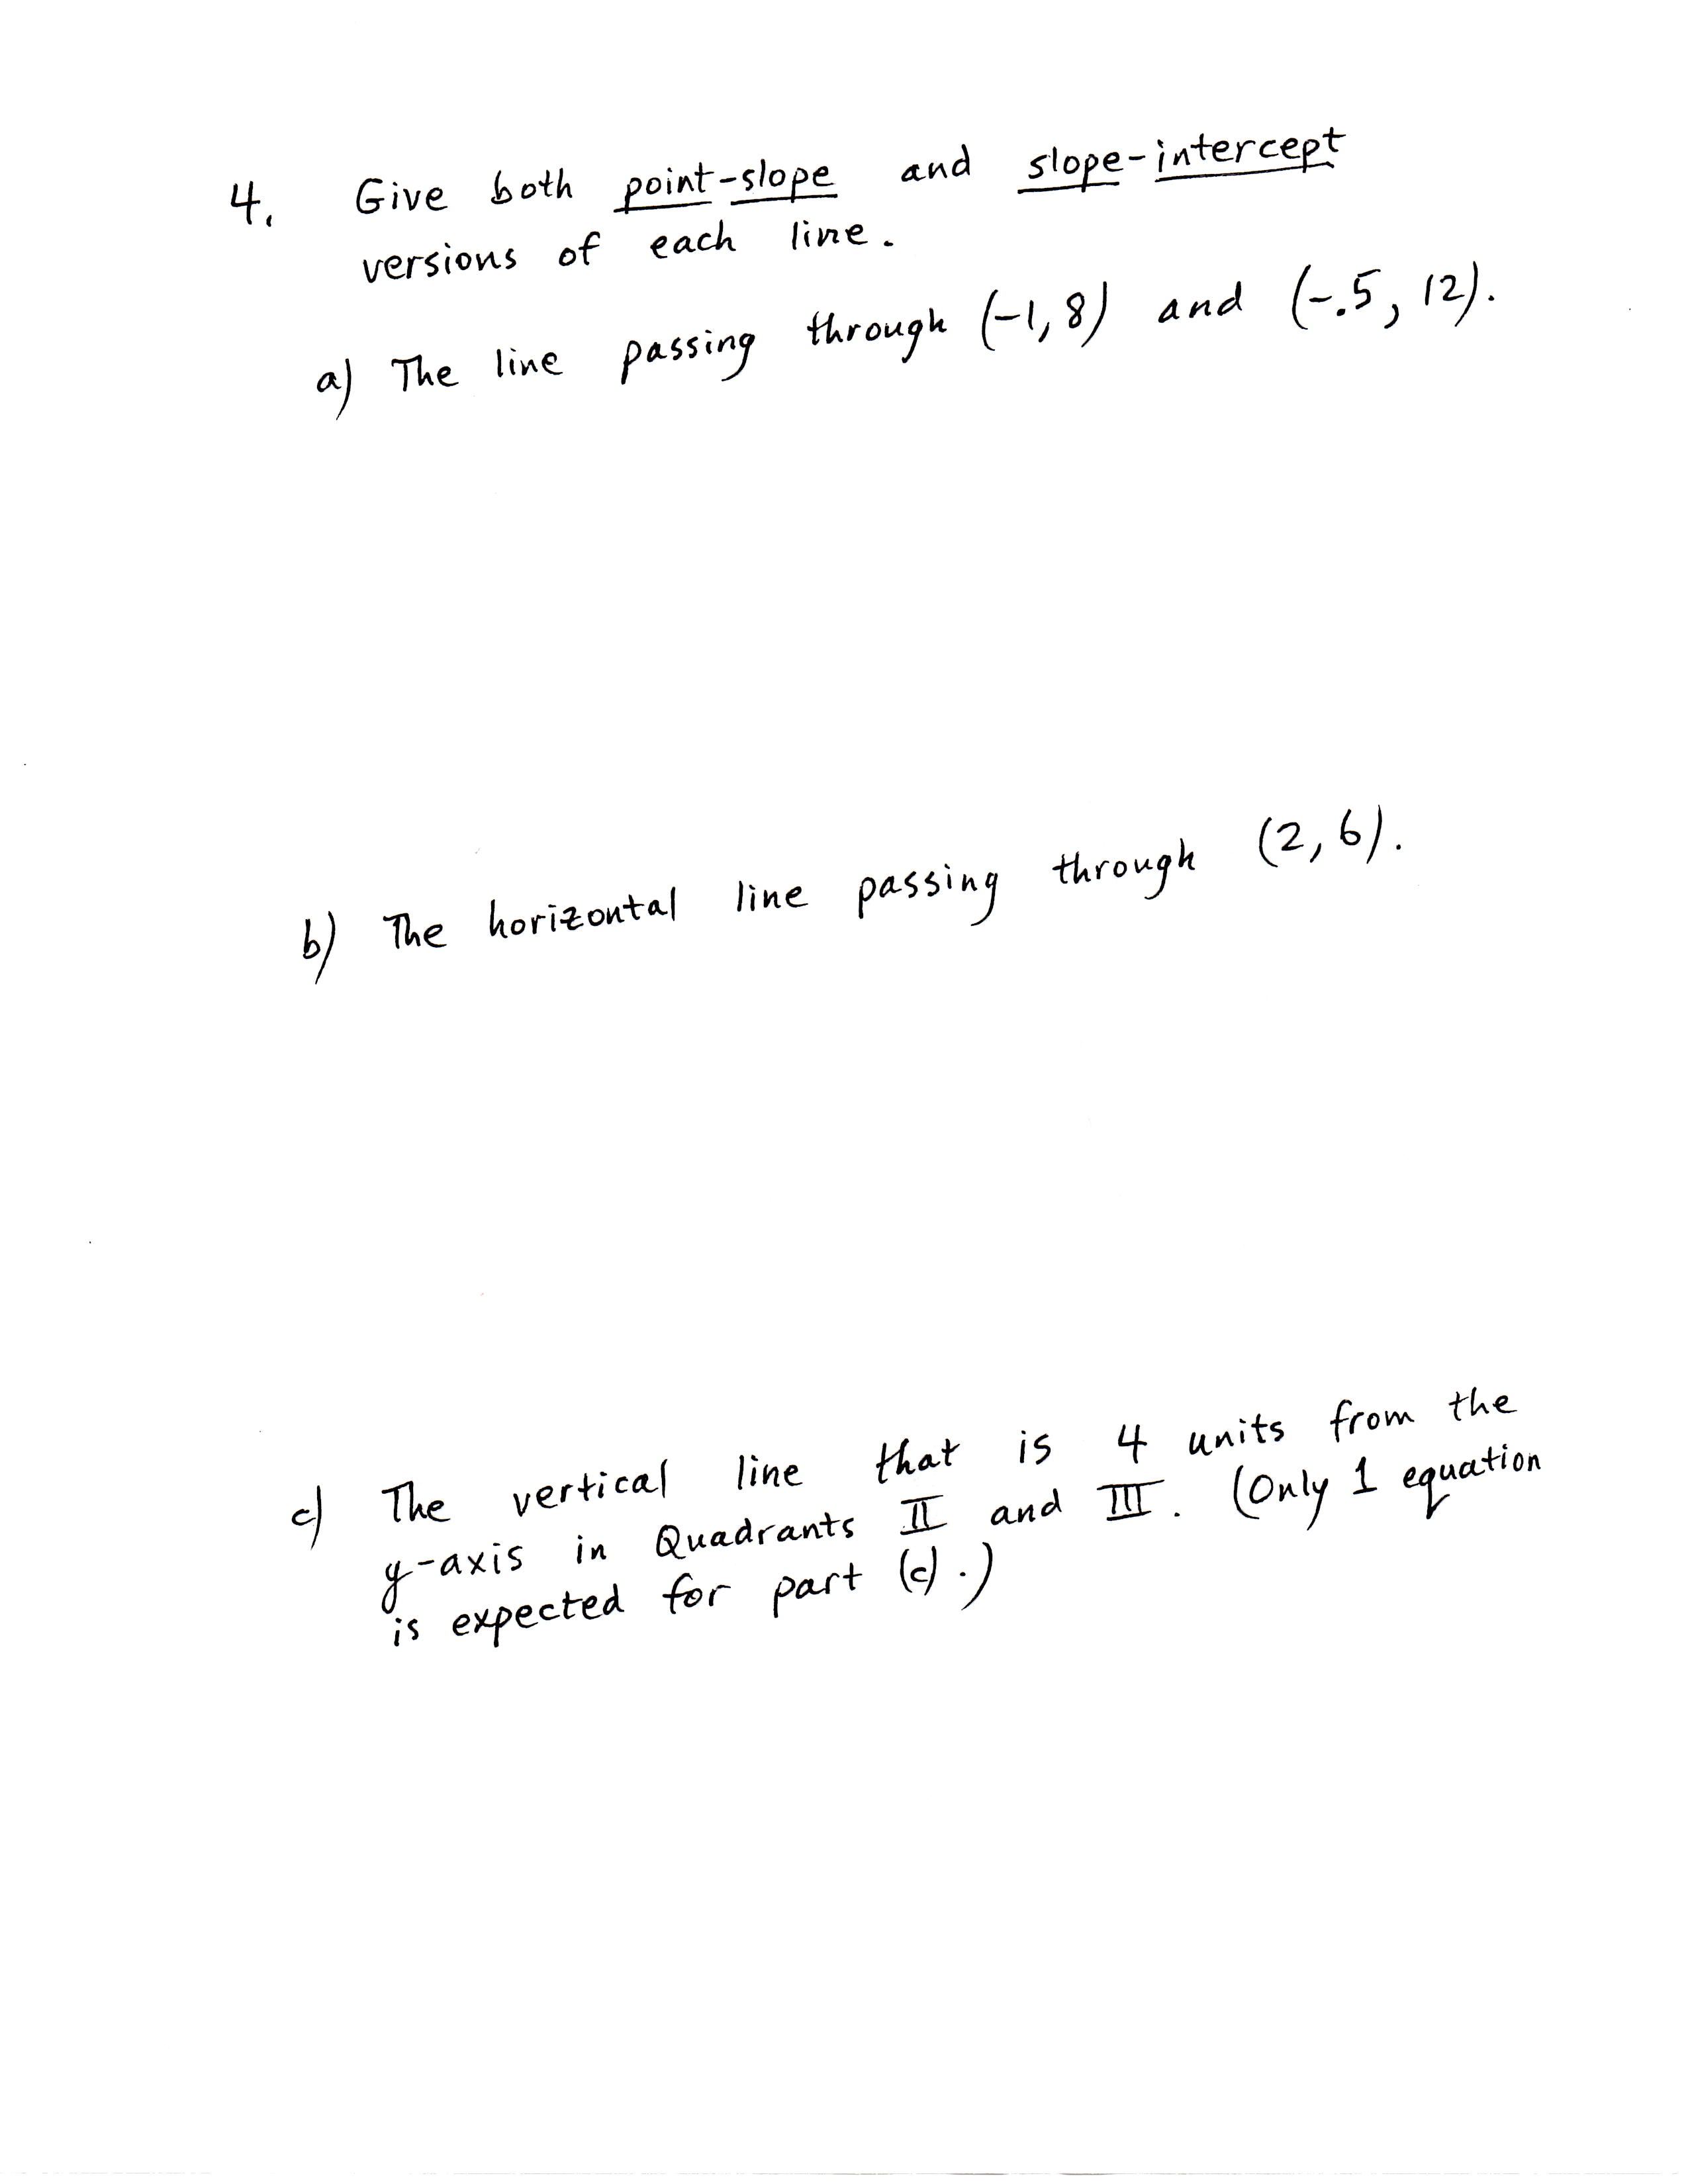 4. Give both point-slope and slope-intercept
versions of each line.
a) The line passing through (-1, 8) and (-.5, 12).
b) The horizontal line passing through (2, 6).
c) The vertical line that is 4 units from the
y-axis in Quadrants II and III. (Only 1 equation
is expected for part (c).)